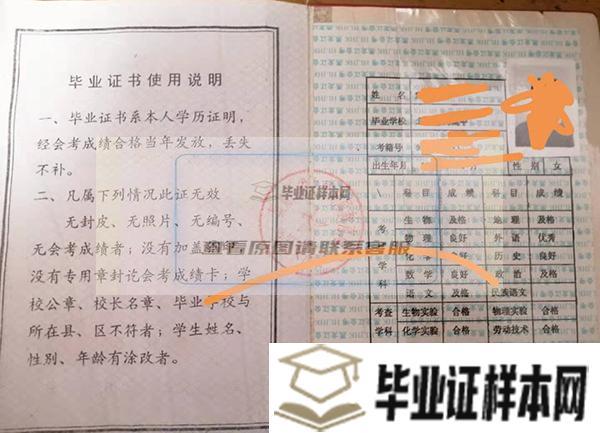 毕业证书使用说明
一、毕业证书系本人学历证明，
经会考成绩合格当年发放，丢失
不补。
二、凡属下列情况此证无效
无封皮、无照片、无编号、
无会考成绩者；没有加盖钢印、
没有专用章封讫会考成绩卡；学
校公章、校长名章、毕业学校与
所在县、区不符者；学生姓名、
性别、年龄有涂改者。
毕业证样本网
查看原图请联系客服
姓 名
毕业学校
考籍号
出生年月 月 性 别 女
科目 成绩 科目 成绩
考 生物 及格 地理 及格
物理 良好 外语 优秀
学 化学 良好 历史 良好
数学 良好 政治 及格
科 语文 及格 民族语文
考查 生物实验 合格 物理实验 合格
学科 化学实验 合格 劳动技术 合格
毕业证样本网